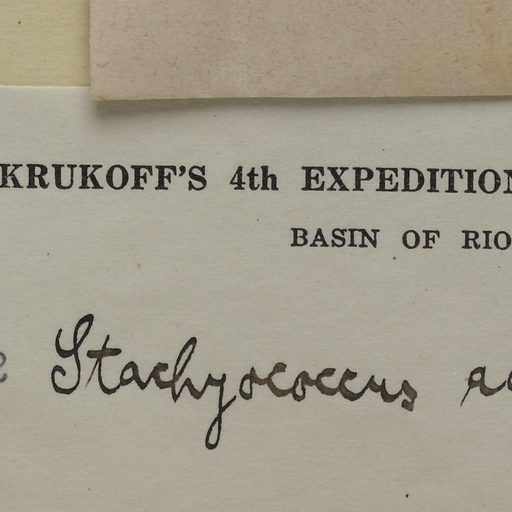 KRUKOFF'S 4th EXPEDITION
BASIN OF RIO
Stachyococcus